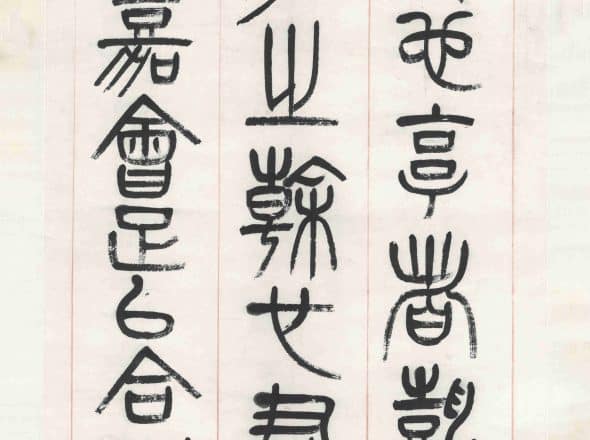 也亨者嘉
之榦也君
嘉會足以合